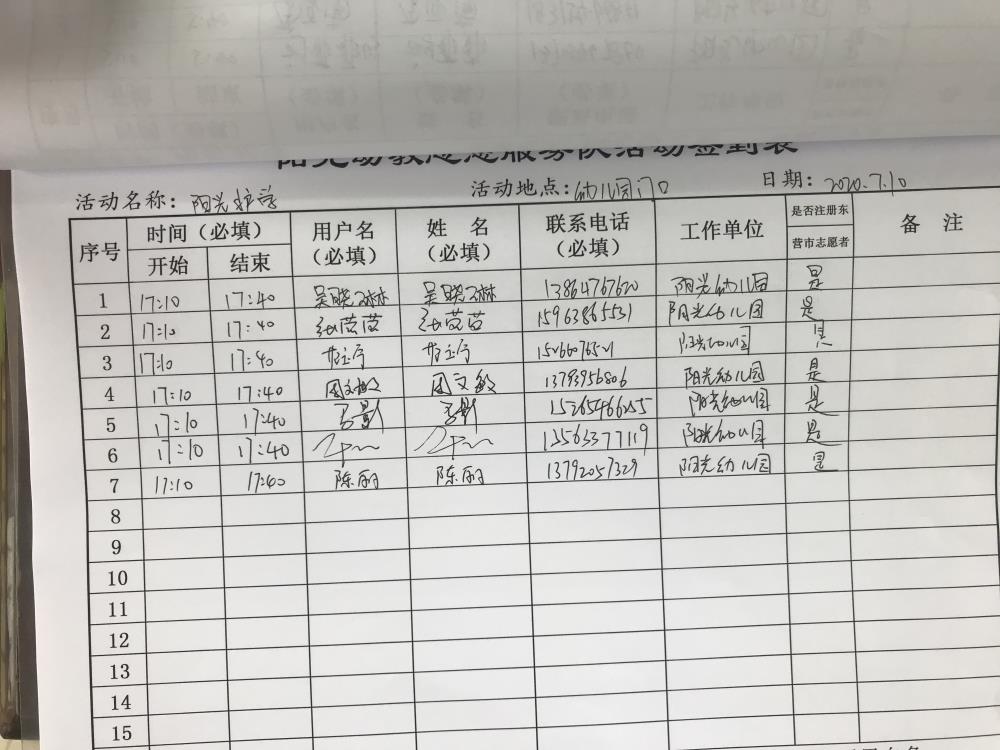 阳光幼教志愿服务队活动签到表
活动名称：阳光护学 活动地点：幼儿园门口 日期：2020.7.10
序号 时间（必填） 用户名（必填） 姓名（必填） 联系电话（必填） 工作单位 是否注册东营市志愿者 备注
开始 结束
1 17:10 17:40 吴晓琳 吴晓琳 13864767620 阳光幼儿园 是
2 17:10 17:40 15963865531 阳光幼儿园 是
3 17:10 17:40 阳光幼儿园 是
4 17:10 17:40 周文敏 周文敏 13793956806 阳光幼儿园 是
5 17:10 17:40 15265466255 阳光幼儿园 是
6 17:10 17:40 13563377119 阳光幼儿园 是
7 17:10 17:40 陈丽 陈丽 13792057329 阳光幼儿园 是
8
9
10
11
12
13
14
15